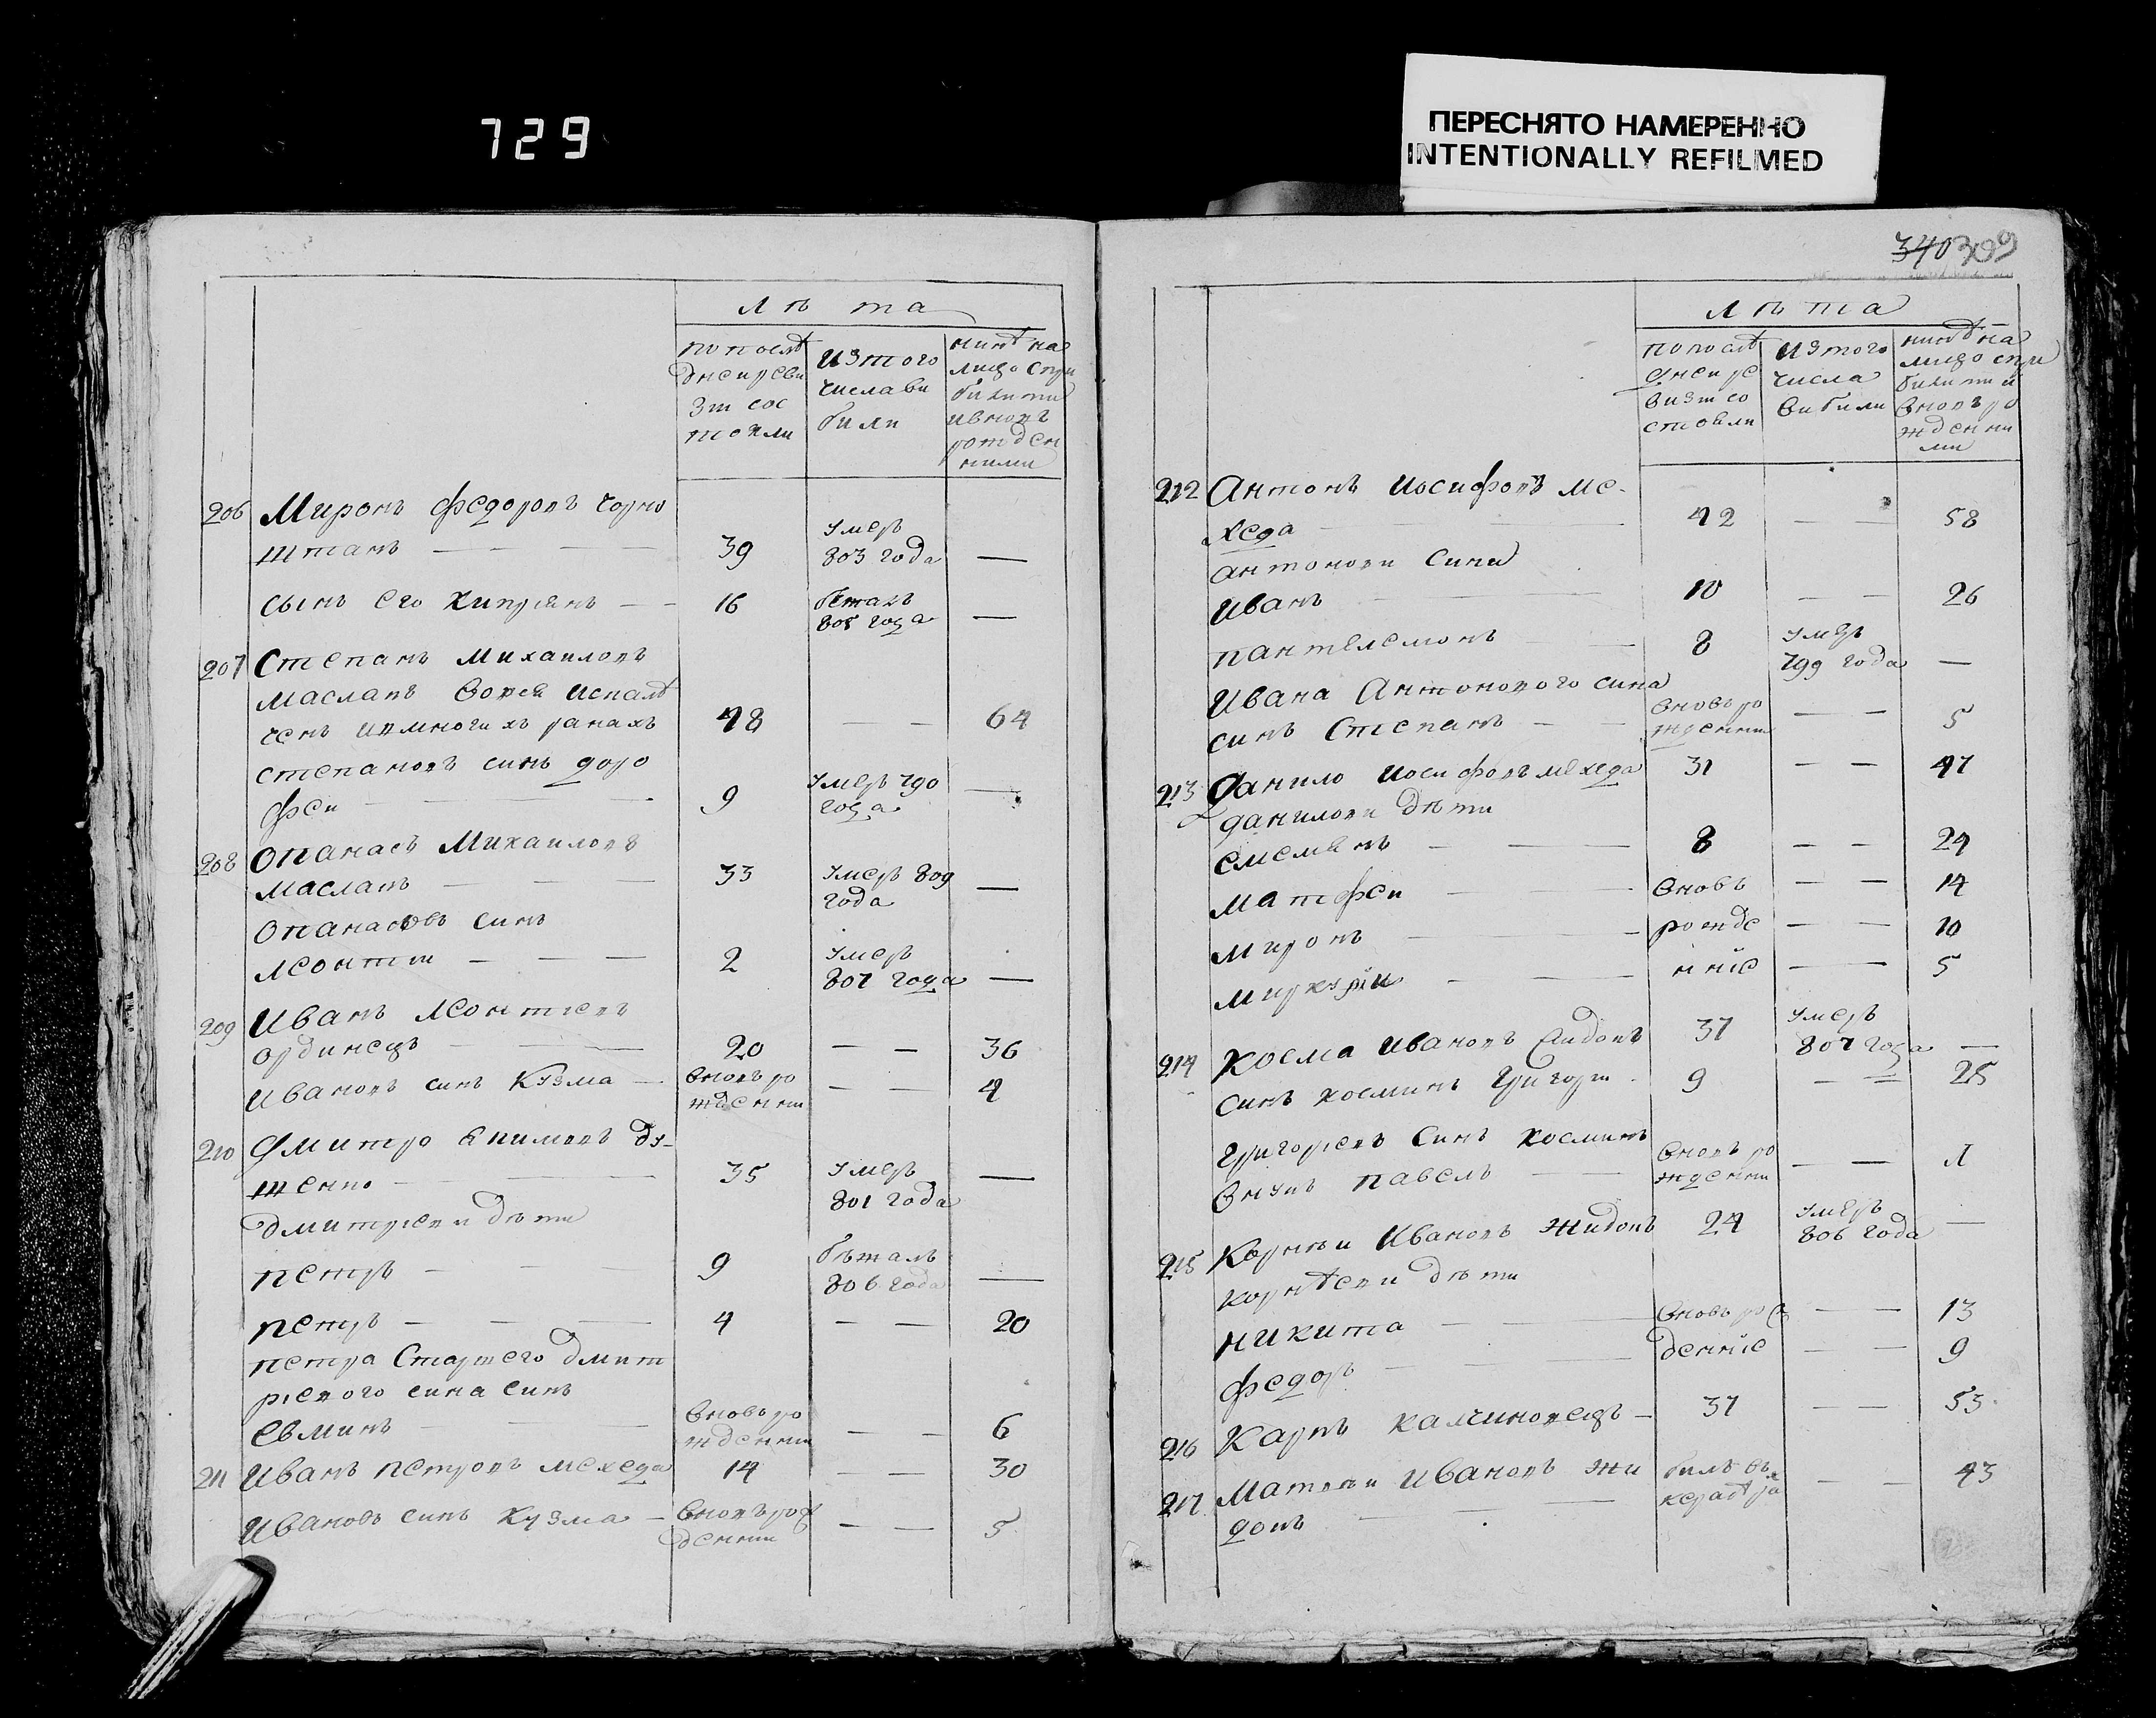 729
ПЕРЕСНЯТО НАМЕРЕННО
INTENTIONALLY REFILMED
Лѣта
по послѣ
дней реви
зіи сос
тояли
изтого
числа ви
били
нинѣ на
лицо с при
билими
и вновь
рожден
ними
206 Миронъ Федоровъ Чорно
штанъ — — — 39 Умеръ 803 года —
сынъ его Киприянъ — — 16 бѣжалъ 805 года —
207 Степанъ Михаиловъ
Маслакъ
ченъ многихъ ранахъ 48 — — 64
Степановъ синъ доро
феи — — 9 Умеръ 790 года —
208 Опанасъ Михаиловъ
Маслакъ — — — 33 Умеръ 809 года —
Опанасовъ синъ
Леонтии — — — 2 Умеръ 807 года —
209 Иванъ Леонтиевъ
Ординецъ — — 20 — — 36
Ивановъ синъ Кузма — вновь рожденнии — — 4
210 Дмитро Якимовъ Ду-
шенко — — — 35 Умеръ 801 года —
Дмитриеви дѣти
Петръ — — — 9 бѣжалъ 806 года —
Петръ — — — 4 — — 20
Петра Старшего Дмит
риевого сина синъ
Евминъ — — вновь рожденнии — — 6
211 Иванъ Петровъ Мехеда 14 — — 30
Ивановъ синъ Кузма — вновь рожденнии — — 5
340 309
Лѣта
по послѣ
дней ре
визіи со
стояли
изтого
числа
вибили
нинѣ на
лицо с при
билими и
вновь ро
жденни
ми
212 Антонъ Иосифовъ Ме-
хеда — — 42 — — 58
Антонови сини
Иванъ — — 10 — — 26
Пантелемонъ — — 8 Умеръ 799 года —
Ивана Антонового сина
синъ Степанъ — — вновь рожденнии — — 5
213 Данило Иосифовъ Мехеда 31 — — 47
Данилови дѣти
Емелянъ — — — 8 — — 24
Матфеи — — вновь — — 14
Миронъ — — рожде — — 10
Миркурій — — нніе — — 5
214 Косма Ивановъ Жидовъ 37 Умеръ 807 года —
Синъ Косминъ Григори 9 — — 25
Григориевъ синъ Косминъ
внукъ Павелъ — — вновь рожденнии — — Л
215 Корнѣи Ивановъ Жидовъ 24 Умеръ 806 года —
Корнѣеви дѣти
Никита — — вновь рож — — 13
Федоръ — — денніе — — 9
216 Карпъ Калчиновецъ — 37 — — 53
217 Матвѣи Ивановъ Жи
довъ — — билъ въ — — 43